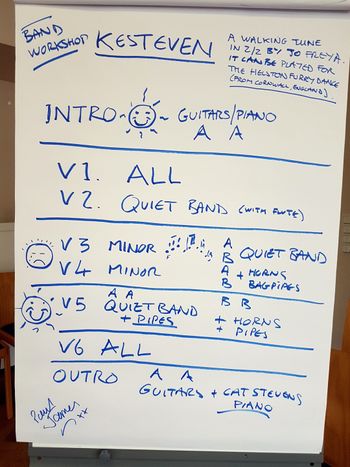 BAND
WORKSHOP
KESTEVEN
A WALKING TUNE
IN 2/2 BY JO FREYA.
IT CAN BE PLAYED FOR
THE HELSTON FURRY DANCE
(FROM CORNWALL, ENGLAND)
INTRO ~ ~ GUITARS/PIANO
A A
V1. ALL
V2. QUIET BAND (WITH FLUTE)
V3 MINOR A
B QUIET BAND
V4 MINOR A + HORNS
B BAGPIPES
V5 A A B B
QUIET BAND + HORNS
+ PIPES + PIPES
V6 ALL
OUTRO A A
GUITARS + CAT STEVENS
PIANO
Paul
James
xx